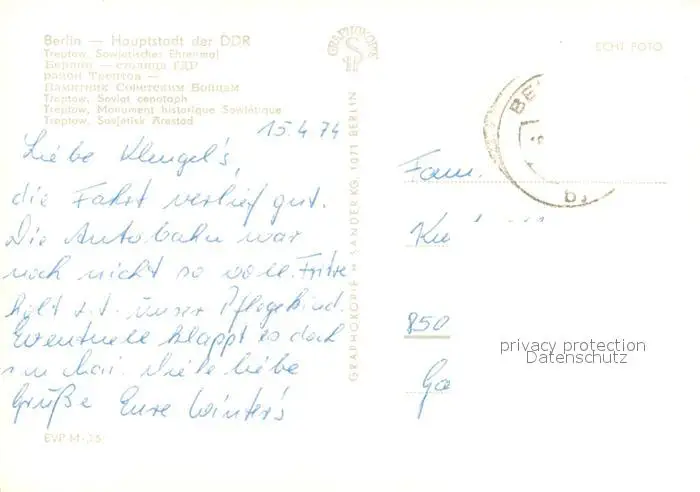 Berlin — Hauptstadt der DDR
Treptow, Sowjetisches Ehrenmal
Берлин — столица ГДР
район Трептов —
Памятник Советским Воинам
Treptow, Soviet cenotaph
Treptow, Monument historique Soviétique
Treptow, Sovjetisk Ærestod
GRAPHOKOPIE
ECHT FOTO
15.4.74
Liebe Klengel's,
die Fahrt verlief gut.
Die Autobahn war
noch nicht so voll. Fritze
hylt z.Z. unser Pflegekind.
Eventuell klappt es doch
im Mai. Viele liebe
Grüße Eure Winter's
GRAPHOKOPIE H. SANDER KG, 1071 BERLIN
Fam.
850
privacy protection
Datenschutz
EVP M